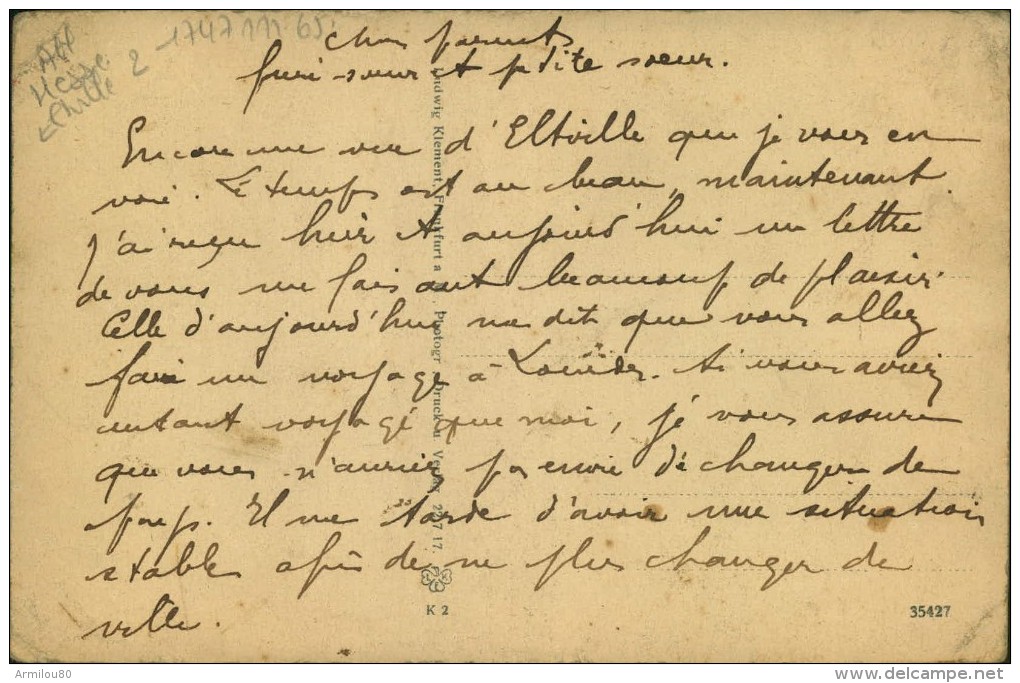 1747 111 65
2
chers parents
sœur et petite sœur.
Encore une vue d'Eltville que je vous en
voie. Le temps est au beau, maintenant
J'ai reçu hier et aujourd'hui un lettre
de vous me faisant beaucoup de plaisir.
Celle d'aujourd'hui me dit que vous allez
faire un voyage à Lourdes. Si vous aviez
autant voyagé que moi, je vous assure
que vous n'auriez pas envie de changer de
pays. Il me tarde d'avoir une situation
stable afin de ne plus changer de
ville.
Ludwig Klement, Frankfurt a Photogr Druck u Verlag 22 7 17.
K 2
35427
Armilou80
delcampe.net